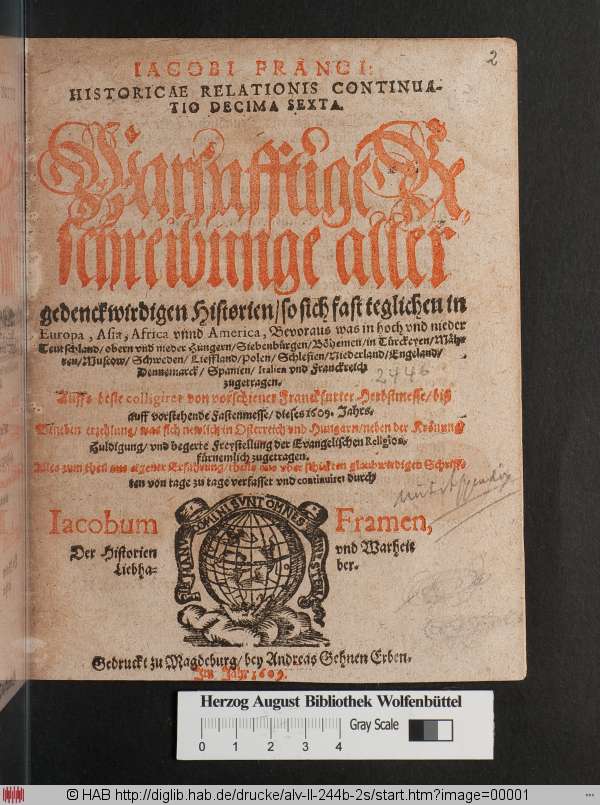 2
IACOBI FRANCI:
HISTORICAE RELATIONIS CONTINUA-
TIO DECIMA SEXTA.
Warhafftige Be-
schreibunge aller
gedenckwirdigen Historien/ so sich fast teglichen in
Europa, Asia, Africa vnnd America, Bevoraus was in hoch vnd nieder
Teutschland/ obern vnd nieder Hungern/ Siebenbürgen/ Böhemen/ in Türckeyen/ Mäh-
ren/ Muscow/ Schweden/ Lieffland/ Polen/ Schlesien/ Niederland/ Engeland/
Dennemarck/ Spanien/ Italien vnd Franckreich
zugetragen.
2446
Auffs beste colligiret von vorschiener Franckfurter Herbstmesse/ biß
auff vorstehende Fastenmesse/ dieses 1609. Jahrs.
erzehlung/ was sich newlich in Osterreich vnd Hungarn/ neben der Krönung
Huldigung/ vnd begerte Freystellung der Evangelischen Religion,
fürnemlich zugetragen.
Alles zum theil aus eigener Erfahrung/ theils aus vberschickten glaubwirdigen Schriff-
ten von tage zu tage verfasset vnd continuiret durch
Iacobum Framen,
Der Historien vnd Warheit
Liebha- ber.
FIRMANVT DOMINI SVNT OMNES
Gedruckt zu Magdeburg/ bey Andreas Gehnen Erben.
Im Jahr 1609.
Herzog August Bibliothek Wolfenbüttel
Gray Scale
0 1 2 3 4
© HAB http://diglib.hab.de/drucke/alv-ll-244b-2s/start.htm?image=00001